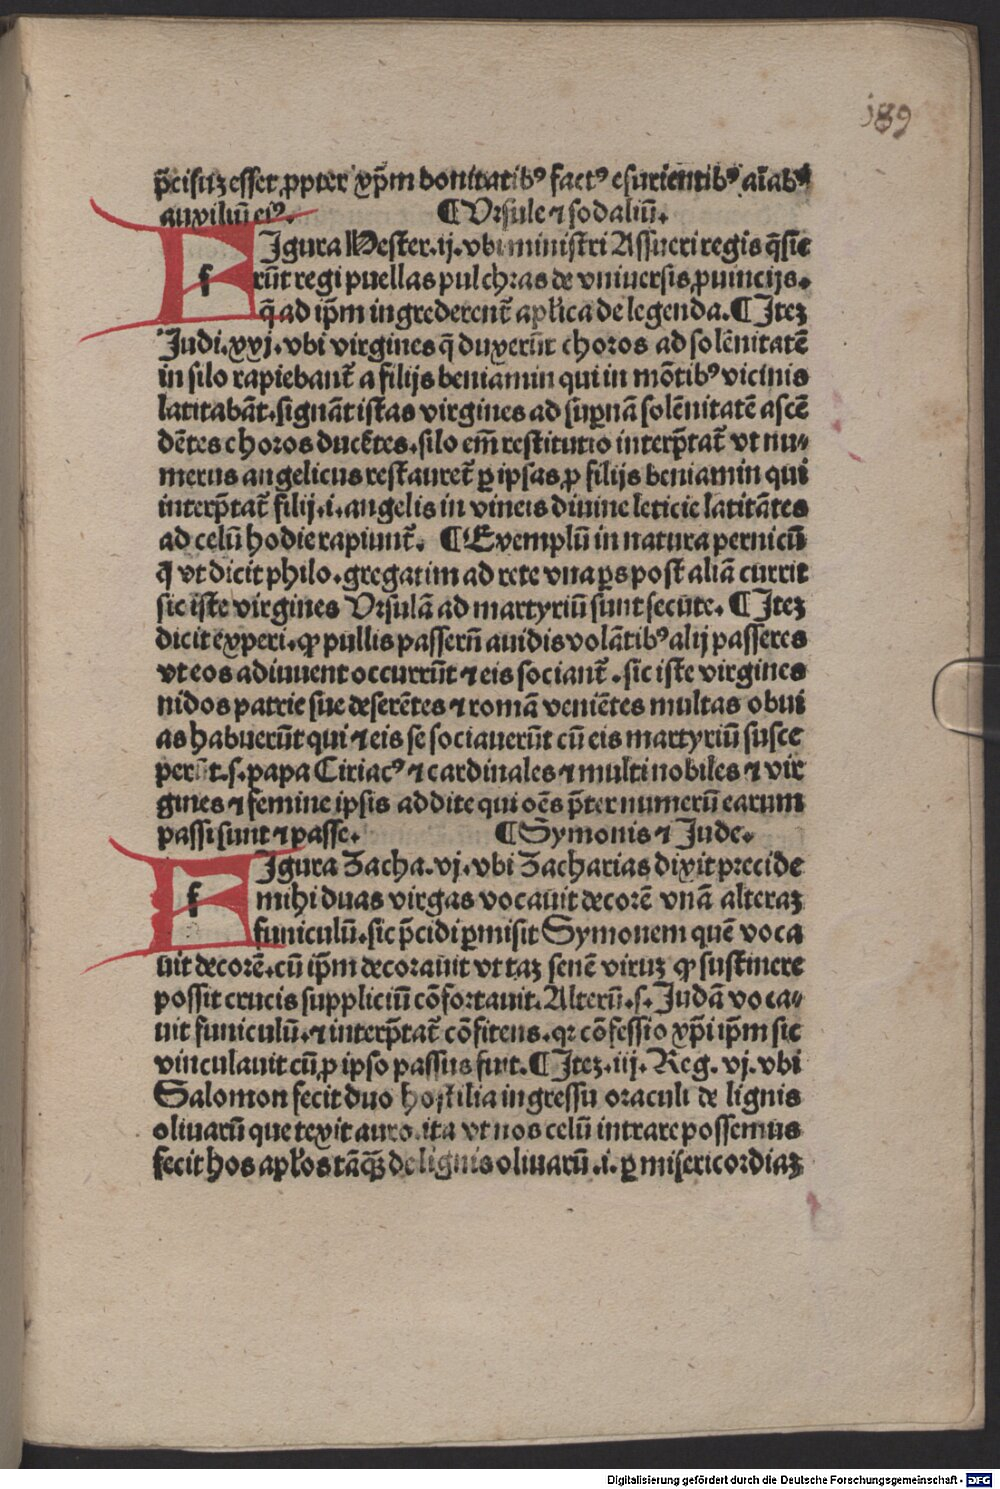 189
p̄cisuꝫ esset ꝓpter xp̄m bonitatibꝰ factꝰ esurientibꝰ aīabꝰ
auxiliū eiꝰ. ¶ Vrsule ⁊ sodaliū.
FIgura Hester. ij. vbi ministri Assueri regis q̄sie
rūt regi puellas pulchras de vniuersis ꝓuincijs.
q̄ ad ip̄m ingrederent̄ aplica de legenda. ¶ Iteꝫ
Judi. xxj. vbi virgines q̄ duxerūt choros ad solēnitatē
in silo rapiebant̄ a filijs beniamin qui in mōtibꝰ vicinis
latitabāt. signāt istas virgines ad sup̱nā solēnitatē ascē
dētes choros ducētes. silo em̄ restitutio interp̄tat̄ vt nu-
merus angelicus restauret̄ ꝑ ipsas ꝓ filijs beniamin qui
interp̄tat̄ filij .i. angelis in vineis diuine leticie latitātes
ad celū hodie rapiunt̄. ¶ Exemplū in natura pernicū
q̄ vt dicit philo. gregatim ad rete vna ꝑs post aliā currit
sic iste virgines Vrsulā ad martyriū sunt secute. ¶ Iteꝫ
dicit experi. ꝙ pullis passerū auidis volātibꝰ alij passeres
vt eos adiuuent occurrūt ⁊ eis sociant̄. sic iste virgines
nidos patrie sue deserētes ⁊ romā veniētes multas obui
as habuerūt qui ⁊ eis se sociauerūt cū eis martyriū susce
perūt .s. papa Ciriacꝰ ⁊ cardinales ⁊ multi nobiles ⁊ vir
gines ⁊ femine ipsis addite qui oēs p̄ter numerū earum
passi sunt ⁊ passe. ¶ Symonis ⁊ Jude.
FIgura Zacha. vj. vbi Zacharias dixit precide
mihi duas virgas vocauit decorē vnā alteraꝫ
funiculū. sic p̄cidi ꝑmisit Symonem quē voca
uit decorē. cū ip̄m decorauit vt taꝫ senē viruꝫ ꝙ sustinere
possit crucis suppliciū cōfortauit. Alterū .s. Judā voca-
uit funiculū. ⁊ interp̄tat̄ cōfitens. qꝛ cōfessio xp̄i ip̄m sic
vinculauit cū ꝓ ipso passus fuit. ¶ Iteꝫ. iij. Reg. vj. vbi
Salomon fecit duo hostilia ingressu oraculi de lignis
oliuarū que texit auro. ita vt nos celū intrare possemus
fecit hos apłos tāqꝫ de lignis oliuarū .i. ꝑ misericordiaꝫ
Digitalisierung gefördert durch die Deutsche Forschungsgemeinschaft - DFG